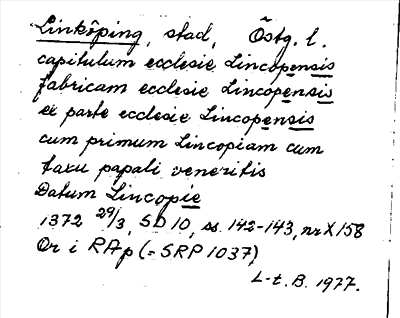 Linköping, stad, Östg. l.
capitulum ecclesie Lincopensis
fabricam ecclesie Lincopensis
ex parte ecclesie Lincopensis
cum primum Lincopiam cum
taxu papali veneritis
Datum Lincopie
1372 29/3, SD 10, ss. 142-143, nr X 158
Or i RAp (= SRP 1037)
L-t. B. 1977.